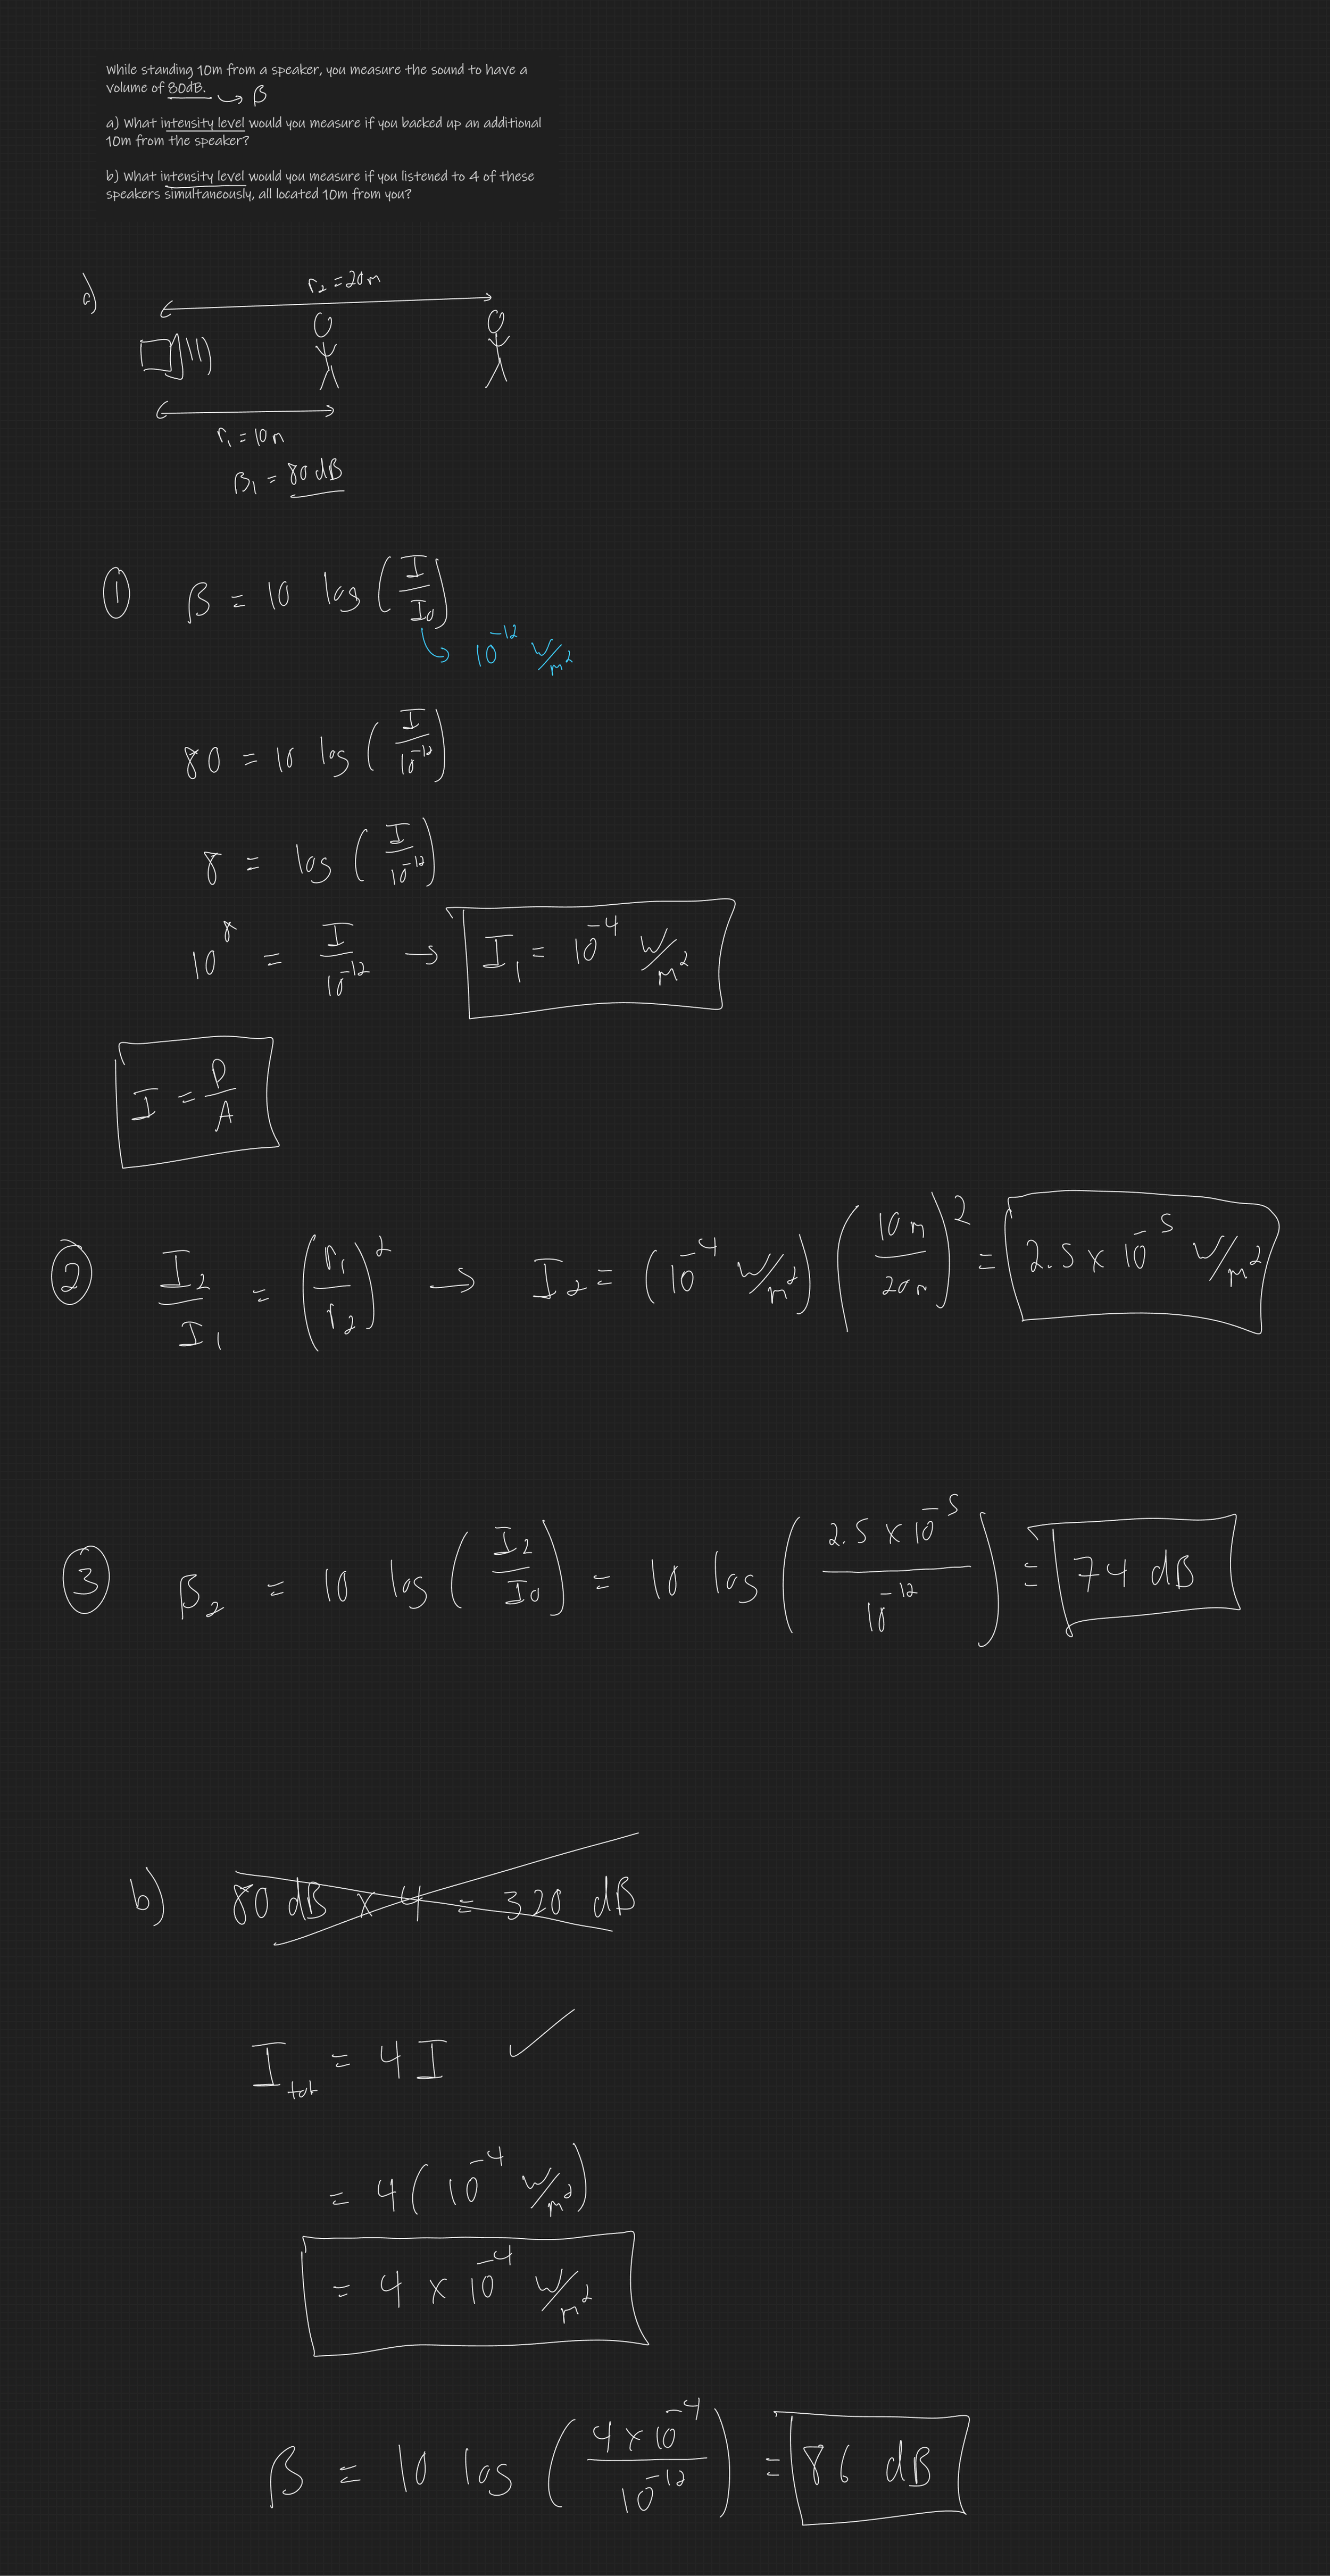 While standing 10m from a speaker, you measure the sound to have a
volume of 80dB. → β
a) What intensity level would you measure if you backed up an additional
10m from the speaker?
b) What intensity level would you measure if you listened to 4 of these
speakers simultaneously, all located 10m from you?
a)
r₂ = 20m
r₁ = 10m
β₁ = 80 dB
① β = 10 log (I/I₀)
→ 10⁻¹² W/m²
80 = 10 log (I/10⁻¹²)
8 = log (I/10⁻¹²)
10⁸ = I/10⁻¹² → I₁ = 10⁻⁴ W/m²
I = P/A
② I₂/I₁ = (r₁/r₂)² → I₂ = (10⁻⁴ W/m²) (10m/20m)² = 2.5 x 10⁻⁵ W/m²
③ β₂ = 10 log (I₂/I₀) = 10 log (2.5 x 10⁻⁵/10⁻¹²) = 74 dB
b) 80 dB x 4 = 320 dB
I_tot = 4I ✓
= 4(10⁻⁴ W/m²)
= 4 x 10⁻⁴ W/m²
β = 10 log (4x10⁻⁴/10⁻¹²) = 86 dB